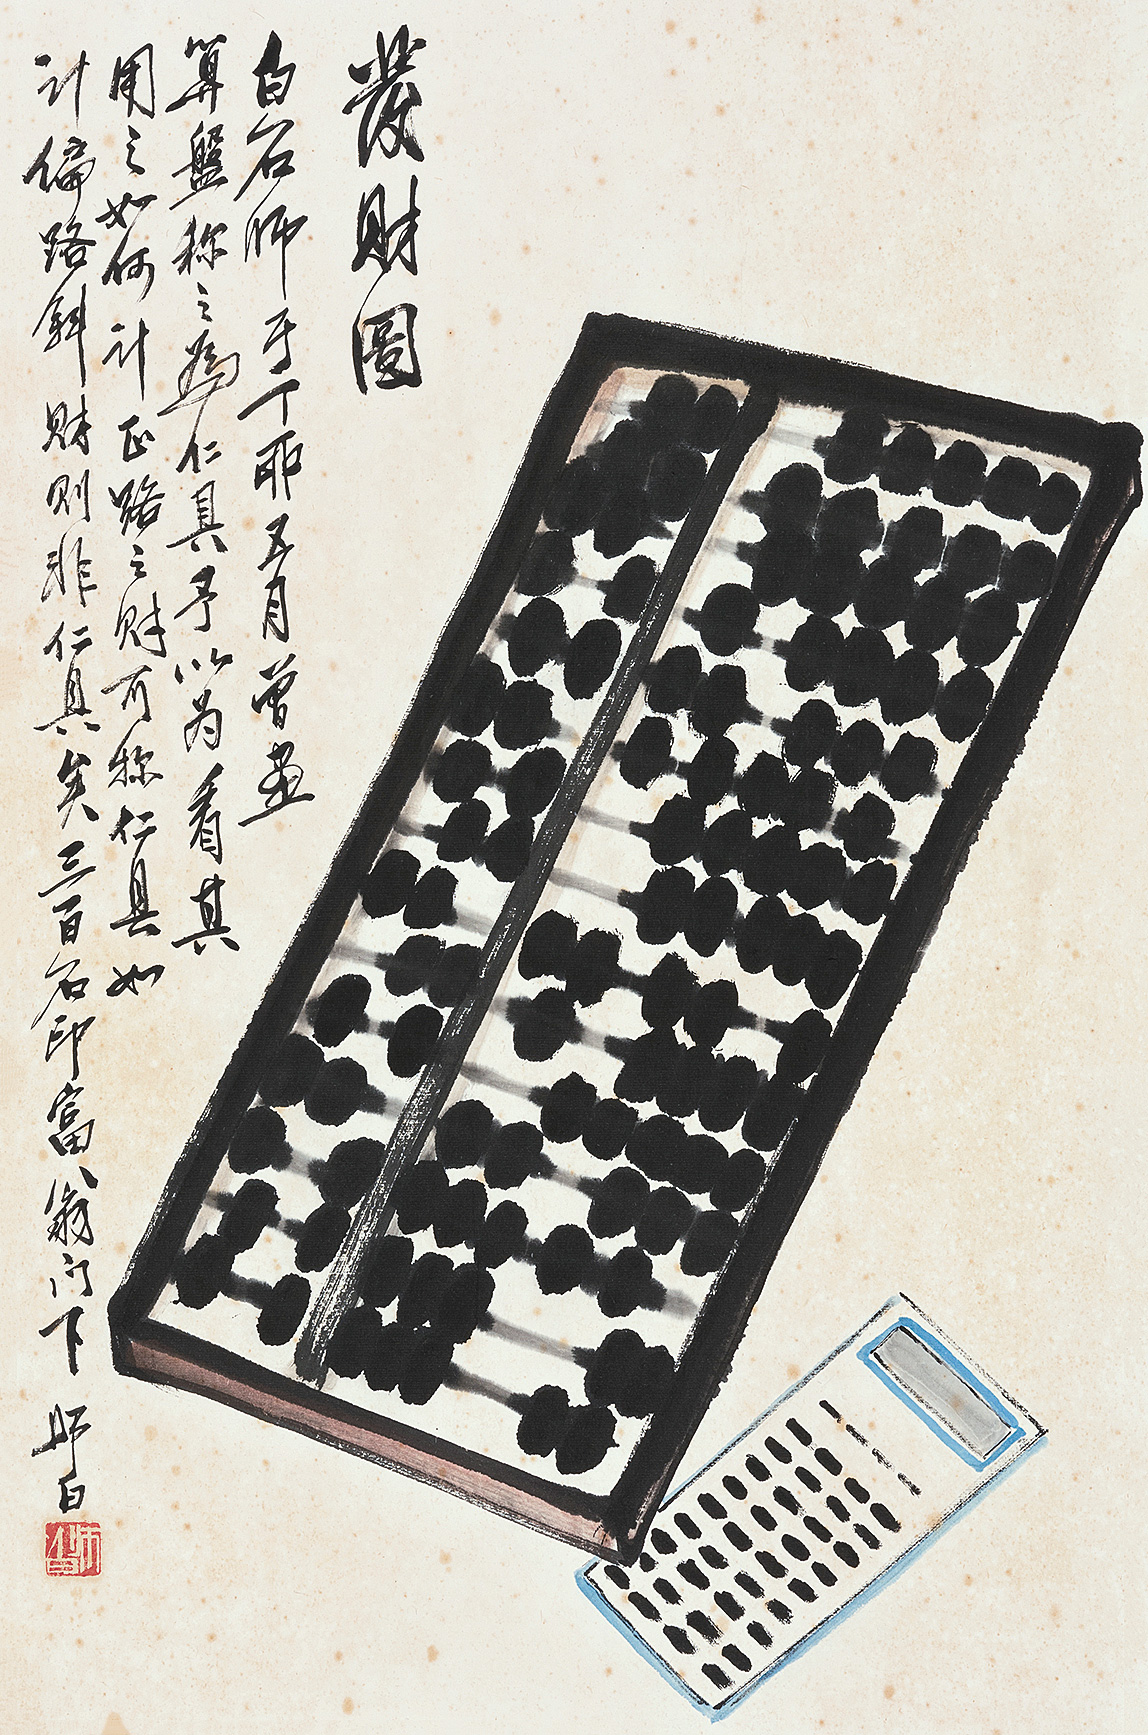 發財圖
白石师于丁卯五月曾畫
算盤称之為仁具予以为看其
用之如何计正路之财可称仁具如
计偏路斜财则非仁具矣三百石印富翁门下 师白